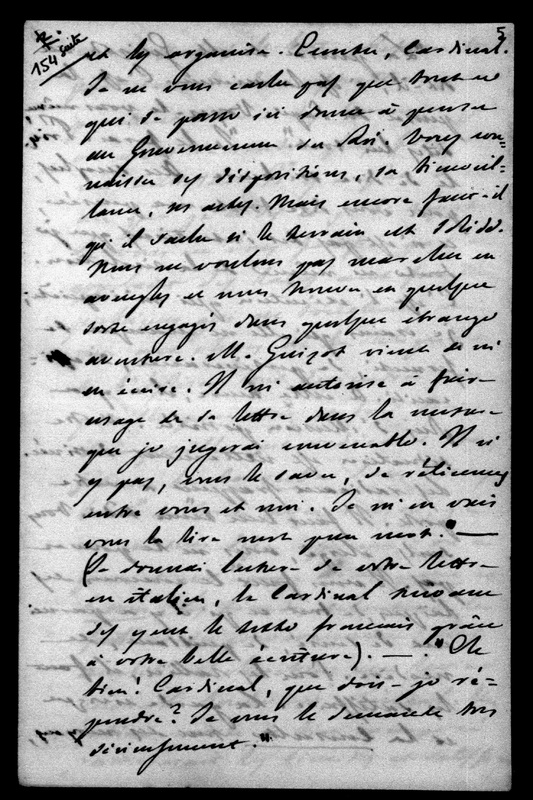 5
154 suite
et les organise. Ensuite, Cardinal.
Je ne vous cache pas que tout ce
qui se passe ici donne à penser
au Gouvernement du Roi. Vous con-
naissez ses dispositions, sa bienveil-
lance, ses actes. Mais encore faut-il
qu'il sache si le terrain est solide.
Nous ne voulons pas marcher en
aveugles et nous trouver en quelque
sorte engagés dans quelque étrange
aventure. M. Guizot vient de m'
en écrire. Il m'autorise à faire
usage de sa lettre dans la mesure
que je jugerai convenable. Il n'
y a pas, vous le savez, de réticences
entre vous et moi. Je m'en vais
vous la lire mot pour mot." —
(Je donnai lecture de votre lettre
en italien, le Cardinal suivant
des yeux le texte français grâce
à votre belle écriture). — "Eh
bien! Cardinal, que dois-je ré-
pondre? Je vous le demande très
sérieusement."